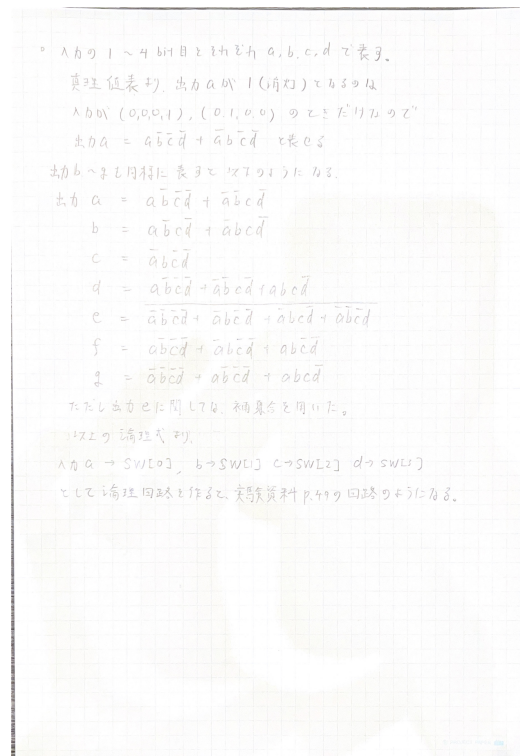 ○ 入力の1〜4bit目をそれぞれa,b,c,dで表す。
真理値表より、出力aが1(消灯)となるのは
入力が(0,0,0,1),(0,1,0,0)のときだけなので
出力a = ab̅c̅d̅ + a̅b̅cd̅ と表せる
出力b〜gも同様に表すと以下のようになる。
出力 a = ab̅c̅d̅ + a̅b̅cd̅
b = ab̅cd̅ + a̅bcd̅
c = a̅bc̅d̅
d = ab̅c̅d̅ + a̅b̅cd̅ + abcd̅
e =
f =
g =
ただし出力eに関しては、補集合を用いた。
以上の論理式より、
入力a→SW[0], b→SW[1] c→SW[2] d→SW[3]
として論理回路を作ると、実験資料p.49の回路のようになる。